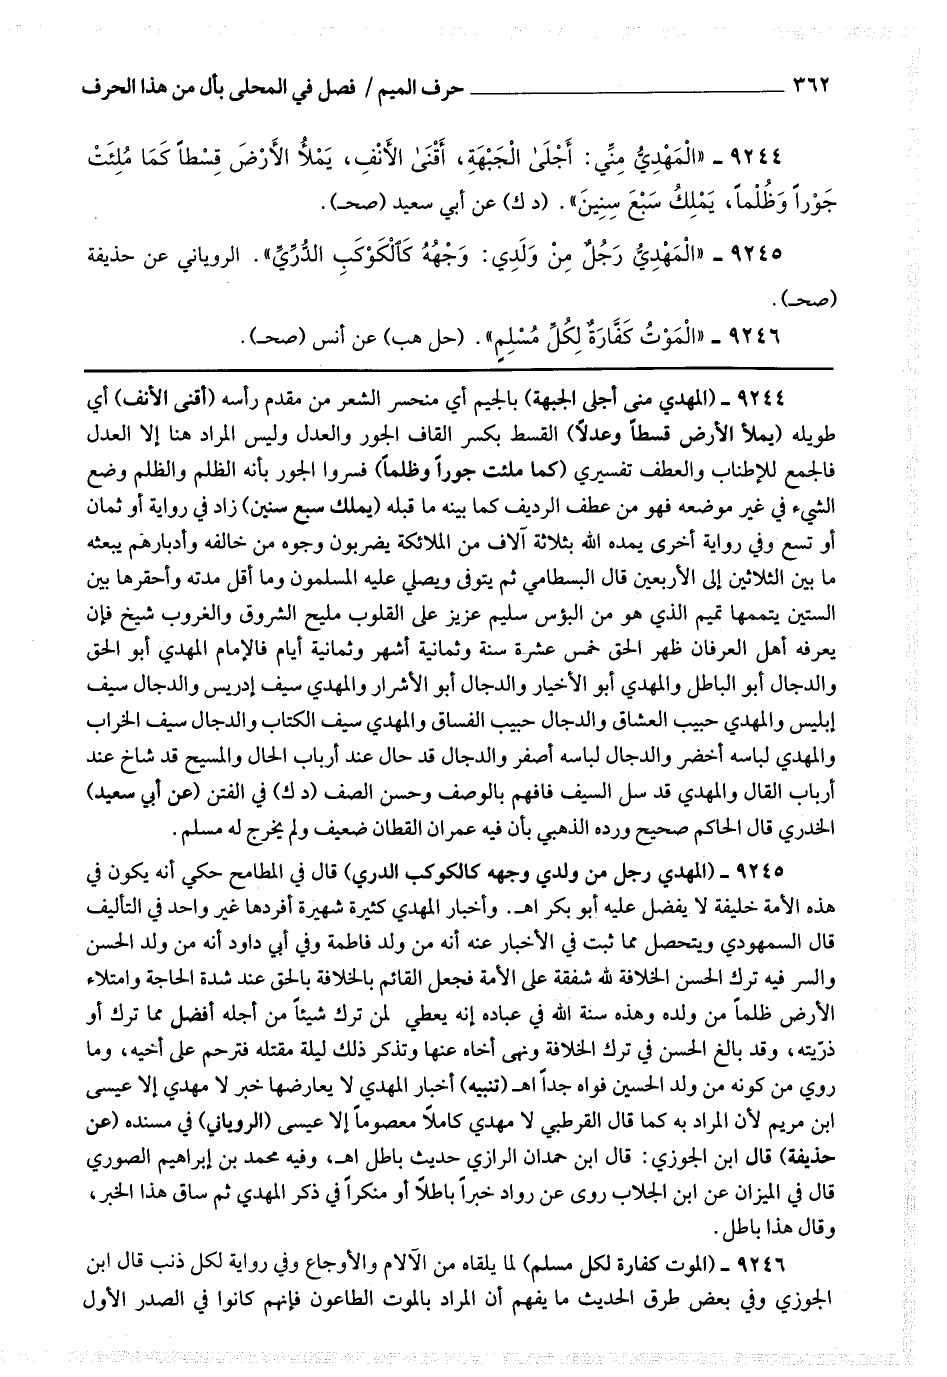 ٣٦٢ حرف الميم / فصل في المحلى بأل من هذا الحرف
٩٢٤٤ ـ «الْمَهْدِيُّ مِنِّي: أَجْلَىٰ الْجَبْهَةِ، أَقْنَىٰ الأَنْفِ، يَمْلأُ الأَرْضَ قِسْطاً كَمَا مُلِئَتْ
جَوْراً وَظُلْماً، يَمْلِكُ سَبْعَ سِنِينَ». (د ك) عن أبي سعيد (صحـ).
٩٢٤٥ ـ «الْمَهْدِيُّ رَجُلٌ مِنْ وَلَدِي: وَجْهُهُ كَالْكَوْكَبِ الدُّرِّيِّ». الروياني عن حذيفة
(صحـ).
٩٢٤٦ ـ «الْمَوْتُ كَفَّارَةٌ لِكُلِّ مُسْلِمٍ». (حل هب) عن أنس (صحـ).
٩٢٤٤ ـ (المهدي منى أجلى الجبهة) بالجيم أي منحسر الشعر من مقدم رأسه (أقنى الأنف) أي
طويله (يملأ الأرض قسطاً وعدلاً) القسط بكسر القاف الجور والعدل وليس المراد هنا إلا العدل
فالجمع للإطناب والعطف تفسيري (كما ملئت جوراً وظلماً) فسروا الجور بأنه الظلم والظلم وضع
الشيء في غير موضعه فهو من عطف الرديف كما بينه ما قبله (يملك سبع سنين) زاد في رواية أو ثمان
أو تسع وفي رواية أخرى يمده الله بثلاثة آلاف من الملائكة يضربون وجوه من خالفه وأدبارهم يبعثه
ما بين الثلاثين إلى الأربعين قال البسطامي ثم يتوفى ويصلي عليه المسلمون وما أقل مدته وأحقرها بين
الستين يتممها تميم الذي هو من البؤس سليم عزيز على القلوب مليح الشروق والغروب شيخ فإن
يعرفه أهل العرفان ظهر الحق خمس عشرة سنة وثمانية أشهر وثمانية أيام فالإمام المهدي أبو الحق
والدجال أبو الباطل والمهدي أبو الأخيار والدجال أبو الأشرار والمهدي سيف إدريس والدجال سيف
إبليس والمهدي حبيب العشاق والدجال حبيب الفساق والمهدي سيف الكتاب والدجال سيف الخراب
والمهدي لباسه أخضر والدجال لباسه أصفر والدجال قد حال عند أرباب الحال والمسيح قد شاخ عند
أرباب القال والمهدي قد سل السيف فافهم بالوصف وحسن الصف (د ك) في الفتن (عن أبي سعيد)
الخدري قال الحاكم صحيح ورده الذهبي بأن فيه عمران القطان ضعيف ولم يخرج له مسلم.
٩٢٤٥ ـ (المهدي رجل من ولدي وجهه كالكوكب الدري) قال في المطامح حكي أنه يكون في
هذه الأمة خليفة لا يفضل عليه أبو بكر اهـ. وأخبار المهدي كثيرة شهيرة أفردها غير واحد في التأليف
قال السمهودي ويتحصل مما ثبت في الأخبار عنه أنه من ولد فاطمة وفي أبي داود أنه من ولد الحسن
والسر فيه ترك الحسن الخلافة لله شفقة على الأمة فجعل القائم بالخلافة بالحق عند شدة الحاجة وامتلاء
الأرض ظلماً من ولده وهذه سنة الله في عباده إنه يعطي لمن ترك شيئاً من أجله أفضل مما ترك أو
ذرّيته، وقد بالغ الحسن في ترك الخلافة ونهى أخاه عنها وتذكر ذلك ليلة مقتله فترحم على أخيه، وما
روي من كونه من ولد الحسين فواه جداً اهـ (تنبيه) أخبار المهدي لا يعارضها خبر لا مهدي إلا عيسى
ابن مريم لأن المراد به كما قال القرطبي لا مهدي كاملاً معصوماً إلا عيسى (الروياني) في مسنده (عن
حذيفة) قال ابن الجوزي: قال ابن حمدان الرازي حديث باطل اهـ، وفيه محمد بن إبراهيم الصوري
قال في الميزان عن ابن الجلاب روى عن رواد خبراً باطلاً أو منكراً في ذكر المهدي ثم ساق هذا الخبر،
وقال هذا باطل.
٩٢٤٦ ـ (الموت كفارة لكل مسلم) لما يلقاه من الآلام والأوجاع وفي رواية لكل ذنب قال ابن
الجوزي وفي بعض طرق الحديث ما يفهم أن المراد بالموت الطاعون فإنهم كانوا في الصدر الأول